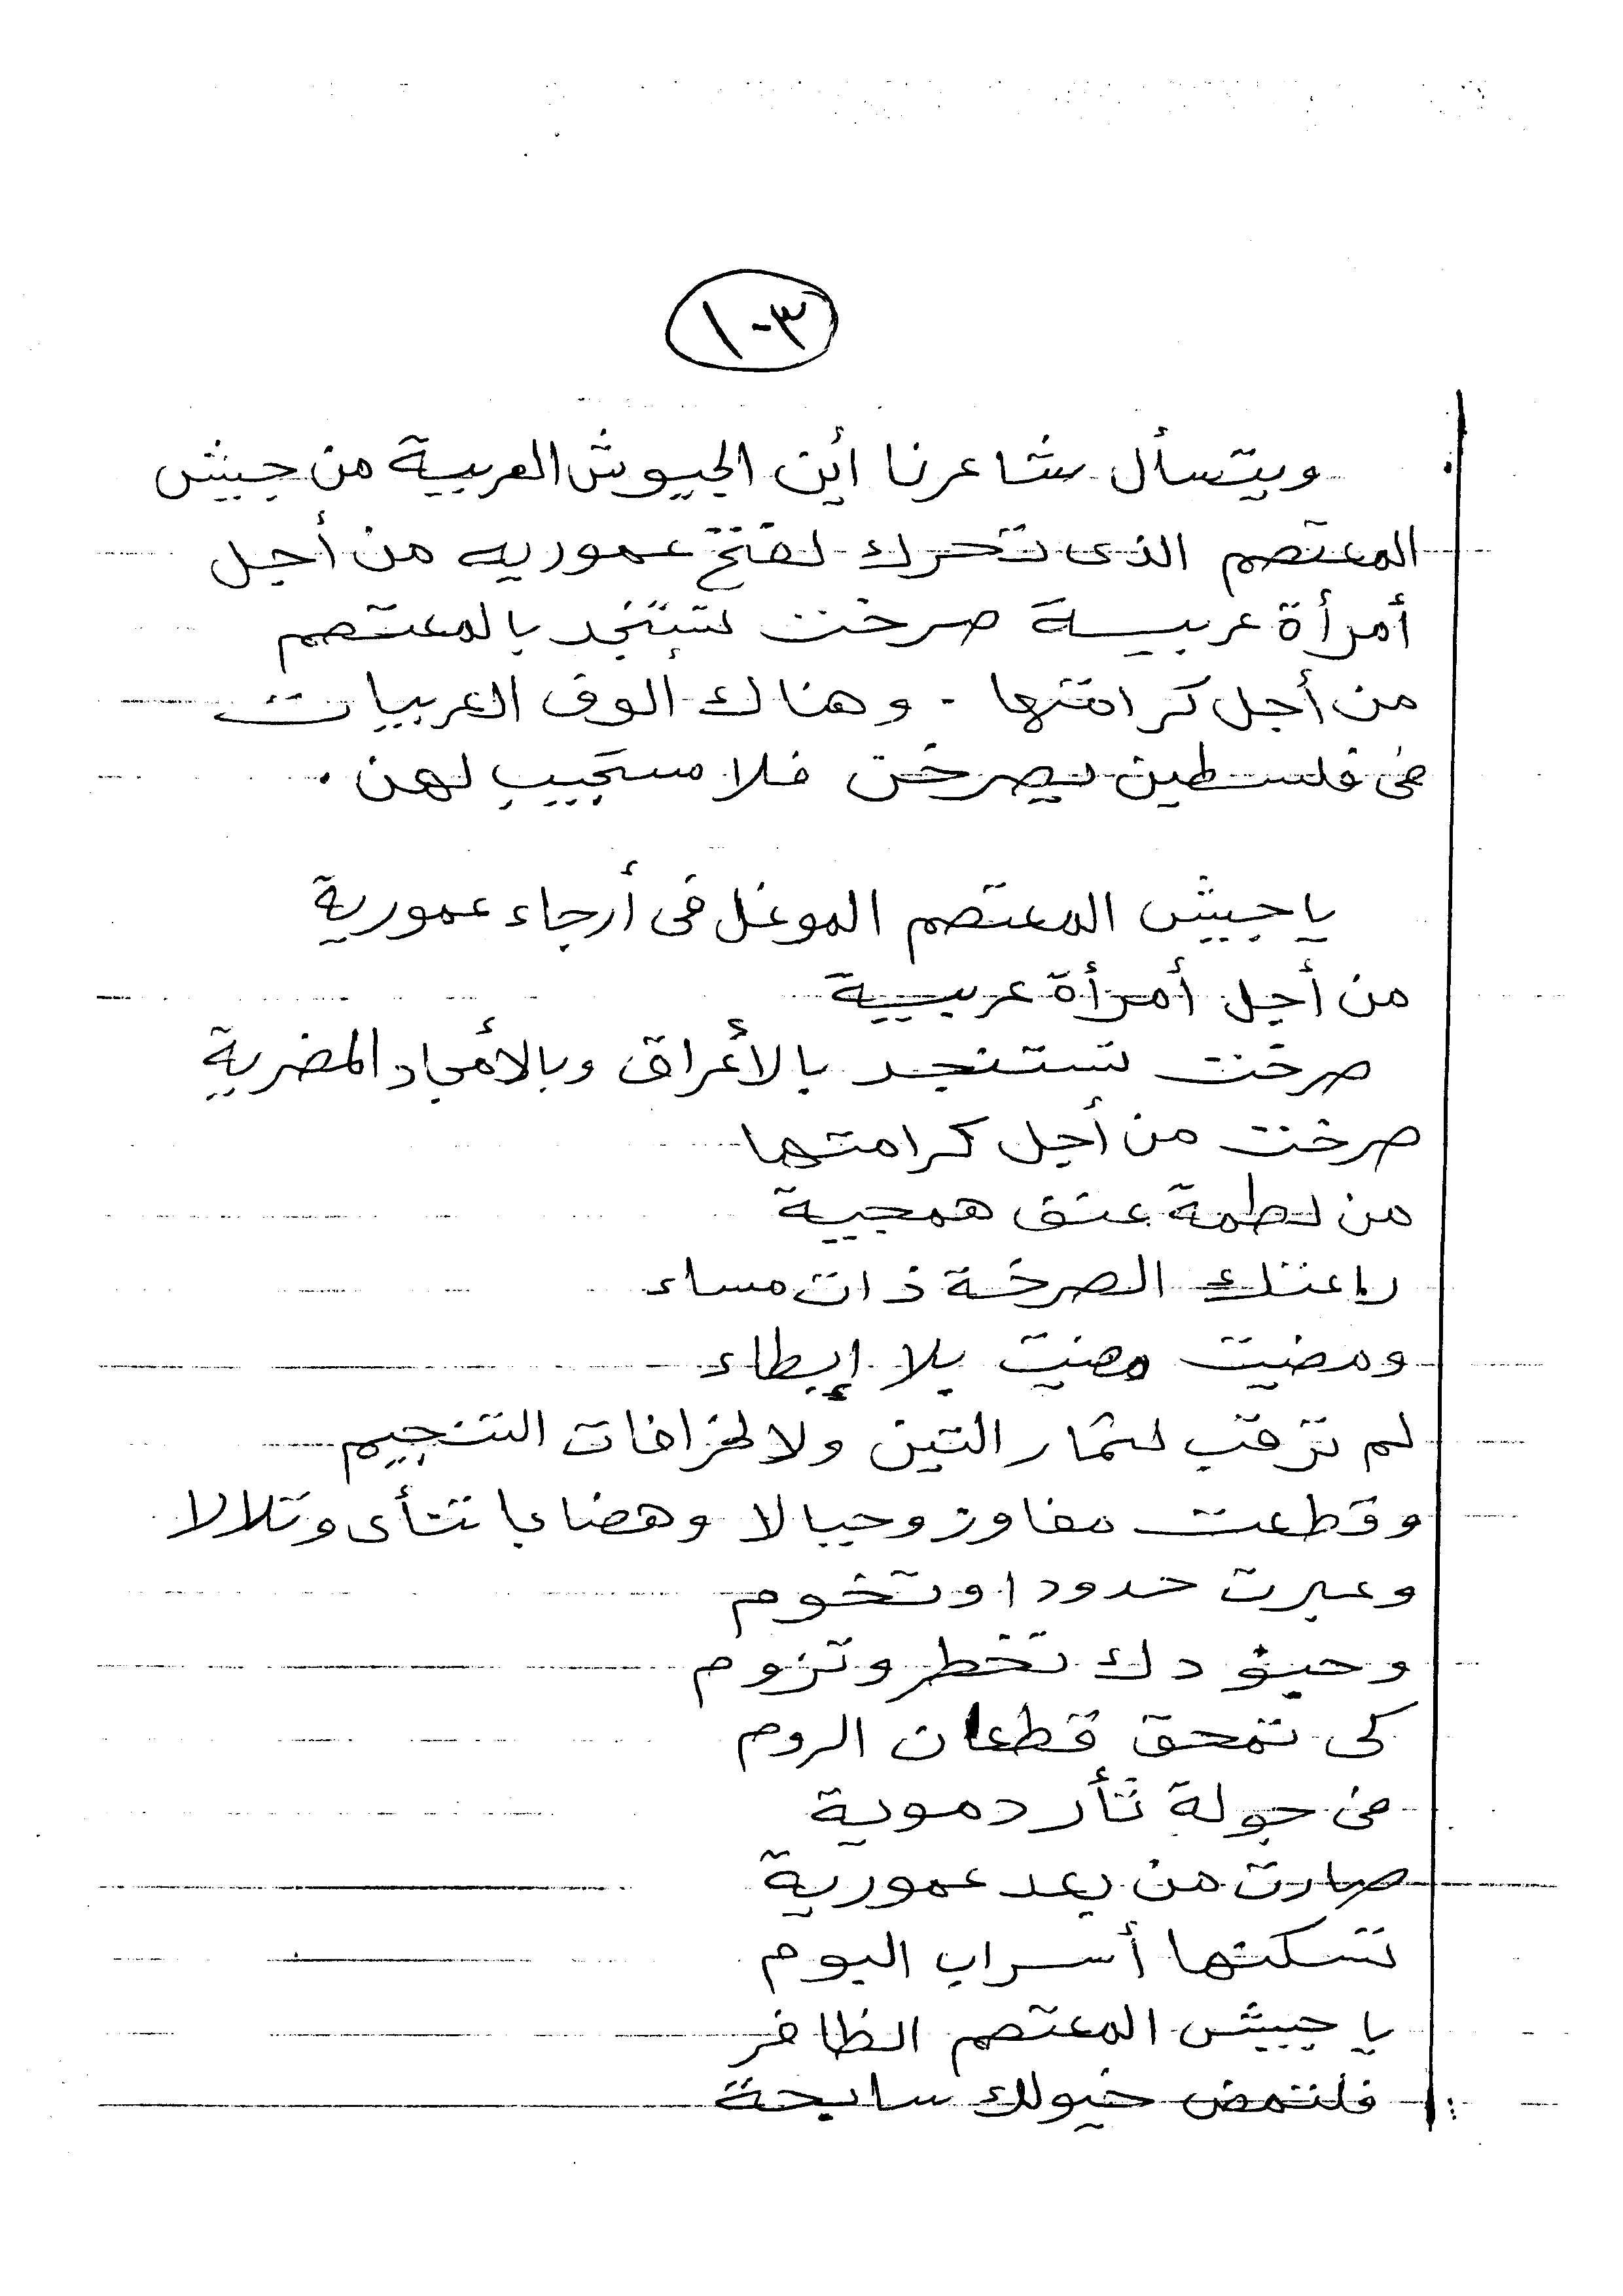 ١٠٣
ويتسأل شاعرنا أين الجيوش العربية من جيش
المعتصم الذى تحرك لفتح عموريه من أجل
أمرأة عربية صرخت تستنجد بالمعتصم
من أجل كرامتها - وهناك ألوف العربيات
فى فلسطين يصرخن فلا مستجيب لهن .
يا جيش المعتصم الموغل فى أرجاء عمورية
من أجل أمرأة عربية
صرخت تستنجد بالأعراق وبالأمجاد المضرية
صرخت من أجل كرامتها
من لطمة همجية
راعتك الصرخة ذات مساء
ومضيت مضيت بلا إبطاء
لم ترقب لثمار التين ولا لخرافات التنجيم
وقطعت مفاوز وجبالا وهضابا تنأى وتلالا
وعبرت حدودا وتخوم
وجيودك تخطر وتزوم
كى تمحق قطعان الروم
فى جولة ثأر دموية
صارت من بعد عمورية
تسكنها أسراب البوم
يا جيش المعتصم الظافر
فلتمض خيولك سابحة